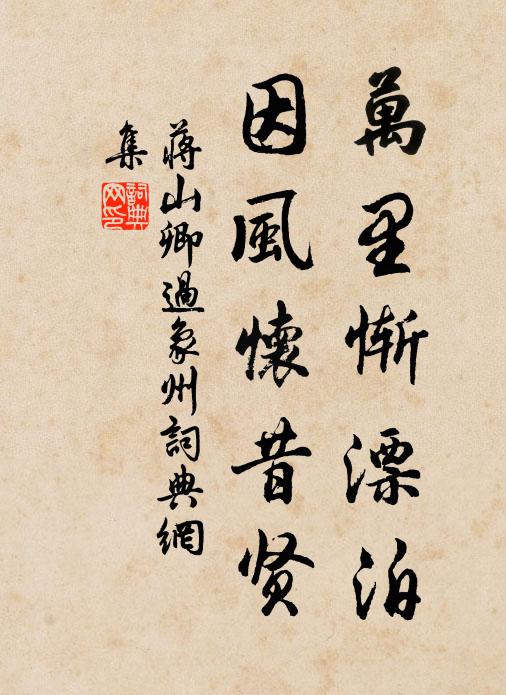 萬里慚漂泊
因風懷昔贤
蔣山卿過象州詞典網
集
詞典
网印